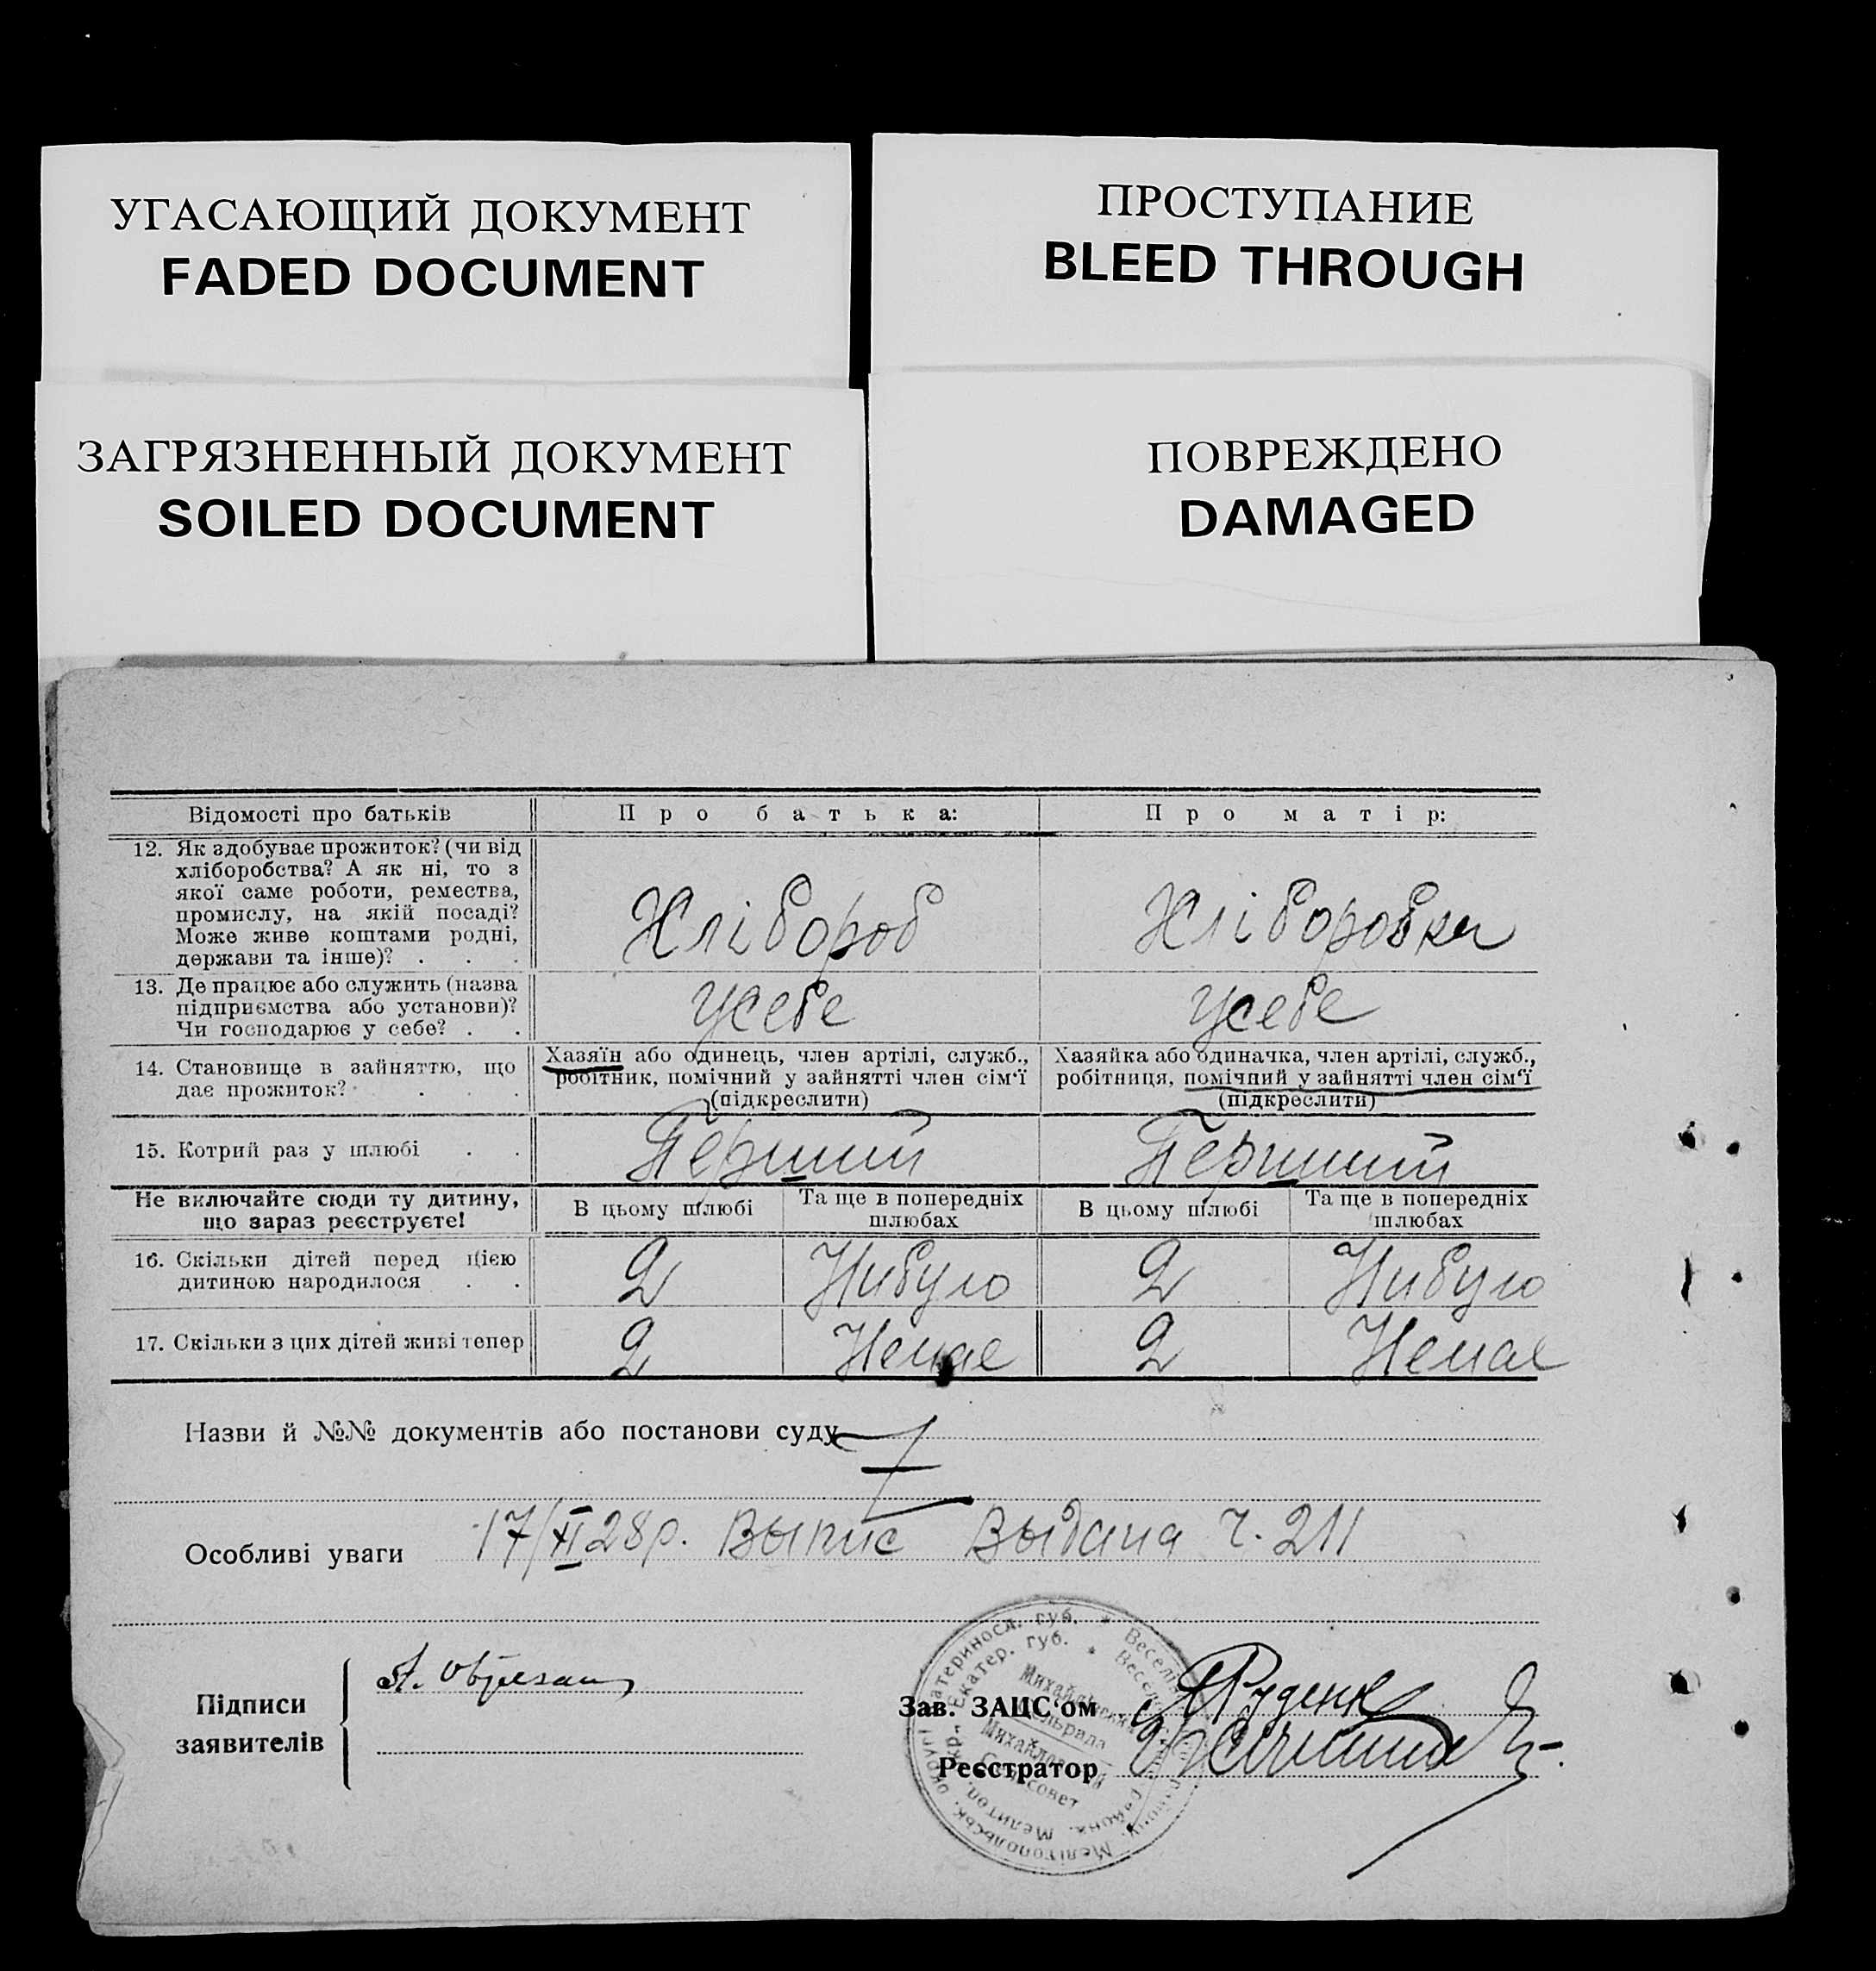 УГАСАЮЩИЙ ДОКУМЕНТ
FADED DOCUMENT
ПРОСТУПАНИЕ
BLEED THROUGH
ЗАГРЯЗНЕННЫЙ ДОКУМЕНТ
SOILED DOCUMENT
ПОВРЕЖДЕНО
DAMAGED
Відомості про батьків
Про батька:
Про матір:
12. Як здобуває прожиток? (чи від
хліборобства? А як ні, то з
якої саме роботи, ремества,
промислу, на якій посаді?
Може живе коштами родні,
держави та інше)? . . .
Хлібороб
Хліборобка
13. Де працює або служить (назва
підприємства або установи)?
Чи господарює у себе? . .
Усебе
Усебе
14. Становище в зайняттю, що
дає прожиток? . . .
Хазяїн або одинець, член артілі, служб.,
робітник, помічний у зайнятті член сім‘ї
(підкреслити)
Хазяйка або одиначка, член артілі, служб.,
робітниця, помічний у зайнятті член сім‘ї
(підкреслити)
15. Котрий раз у шлюбі . .
Перший
Перший
Не включайте сюди ту дитину,
що зараз реєструєте!
В цьому шлюбі
Та ще в попередніх
шлюбах
В цьому шлюбі
Та ще в попередніх
шлюбах
16. Скільки дітей перед цією
дитиною народилося . .
2
Нибуло
2
Нибуло
17. Скільки з цих дітей живі тепер
2
Немае
2
Немае
Назви й №№ документів або постанови суду
Особливі уваги 17/XI 28р. Выпис Выдана ч. 211
Підписи
заявителів
Зав. ЗАЦС‘ом Руденко
Реєстратор